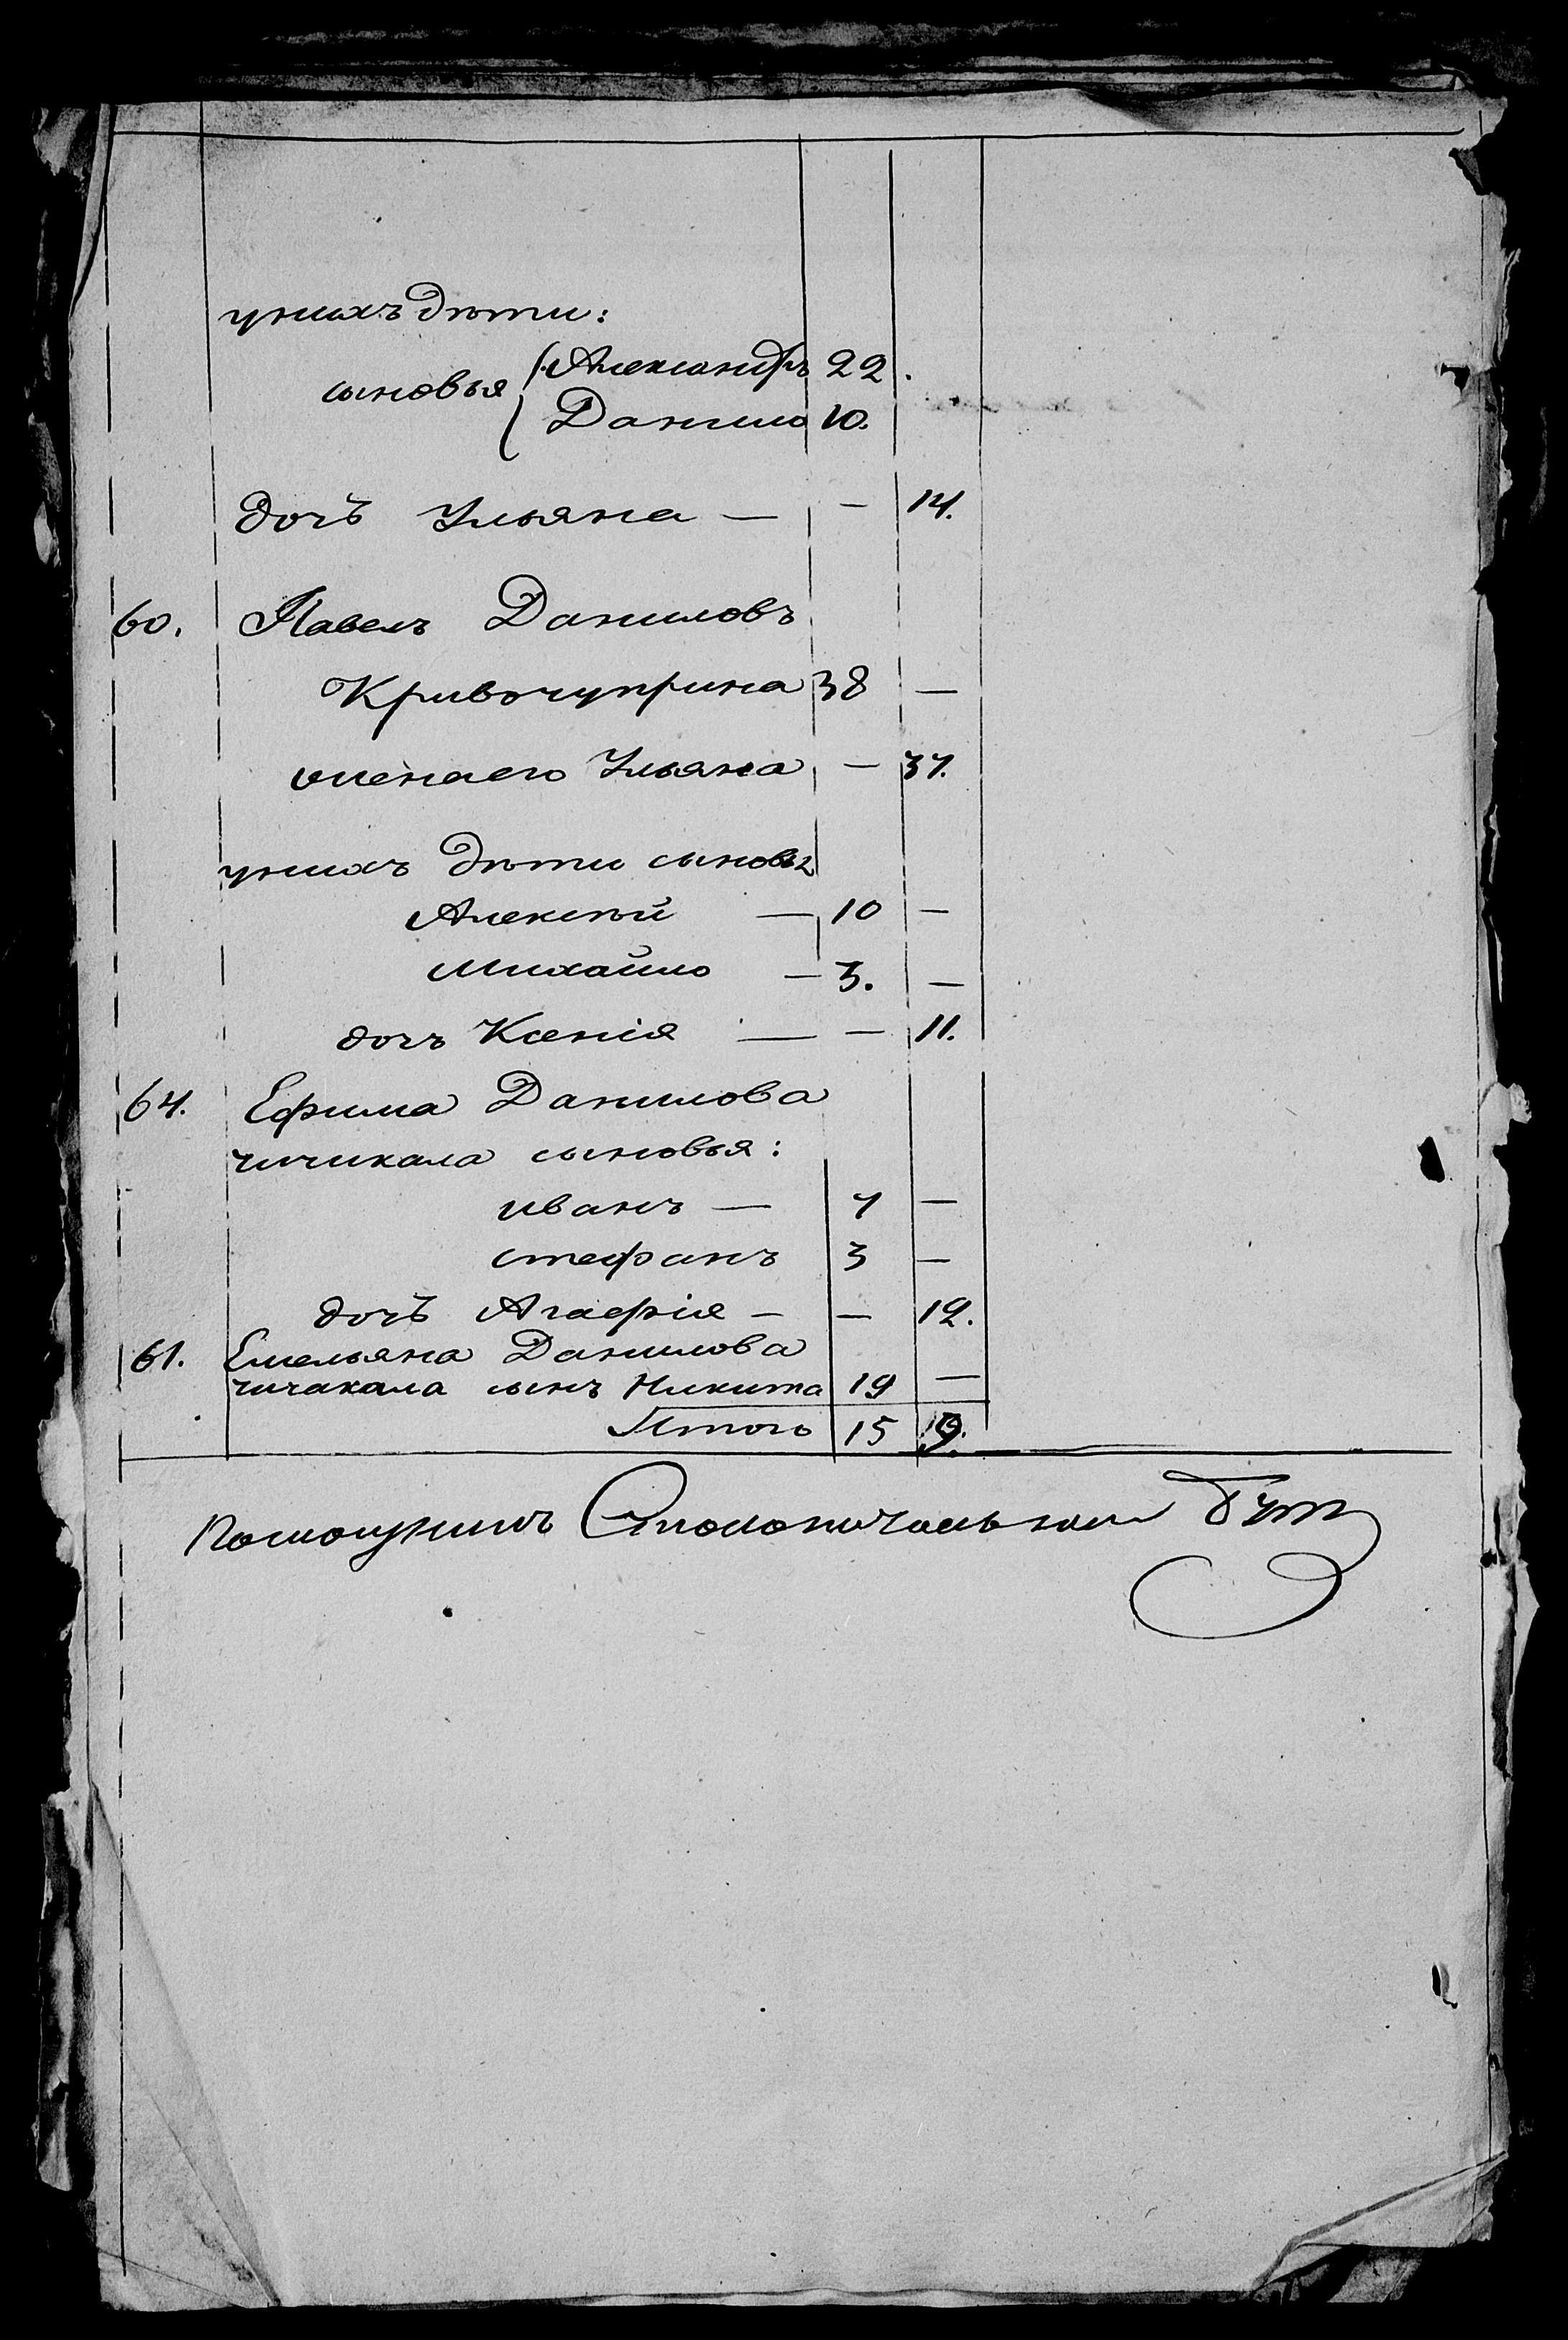 у нихъ дѣти:
сыновья { Александръ 22.
Данило 10.
дочь Ульяна — — 14.
60. Павелъ Даниловъ
Кривочуприна 38 —
жена его Ульяна — 37.
у нихъ дѣти сыновья
Алексѣй — 10 —
Михайло — 3. —
дочь Ксенія — — 11.
64. Ефима Данилова
чичикала сыновья:
иванъ — 7 —
стефанъ 3 —
дочь Агафія — — 12.
61. Емельяна Данилова
чичакала сынъ Никита 19 —
Итого 15
Помощникъ Столоначальника